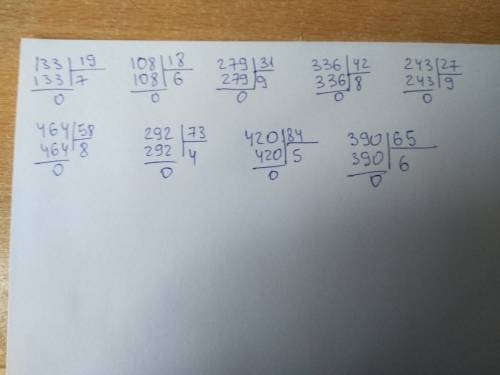 133 19 108 18 279 31 336 42 243 27
133 7 108 6 279 9 336 8 243 9
0 0 0 0 0
464 58 292 73 420 84 390 65
464 8 292 4 420 5 390 6
0 0 0 0